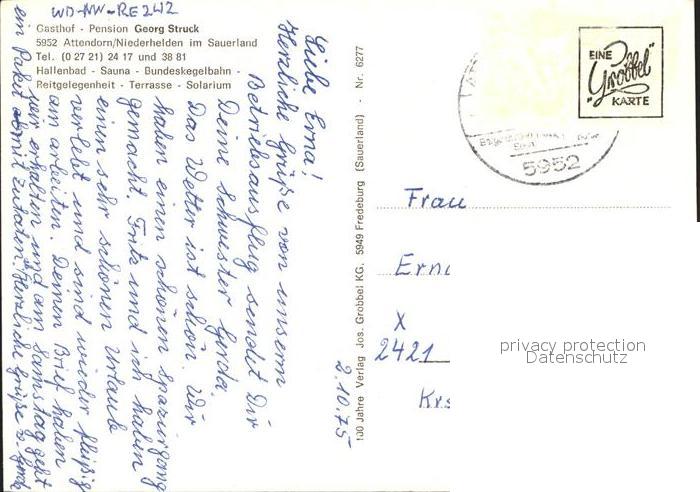 WD-NW-RE2W2
Gasthof - Pension Georg Struck
5952 Attendorn/Niederhelden im Sauerland
Tel. (0 27 21) 24 17 und 38 81
Hallenbad - Sauna - Bundeskegelbahn -
Reitgelegenheit - Terrasse - Solarium
Liebe Erna!
Herzliche Grüße von unserm
Betriebsausflug sendet Dir
Deine Schwester Gerda.
Das Wetter ist schön. Wir
haben einen schönen Spaziergang
gemacht. Fritz und ich haben
einen sehr schönen Urlaub
verlebt und sind wieder fleißig
am arbeiten. Deinen Brief haben
wir erhalten und am Samstag geht
ein Paket mit Zutaten. Herzliche Grüße v. Gerda
2.10.75
100 Jahre Verlag Jos. Grobbel KG, 5949 Fredeburg (Sauerland) - Nr. 6277
EINE
"Grobbel"
KARTE
5952
Frau
Erna
X
2421
Krs
privacy protection
Datenschutz